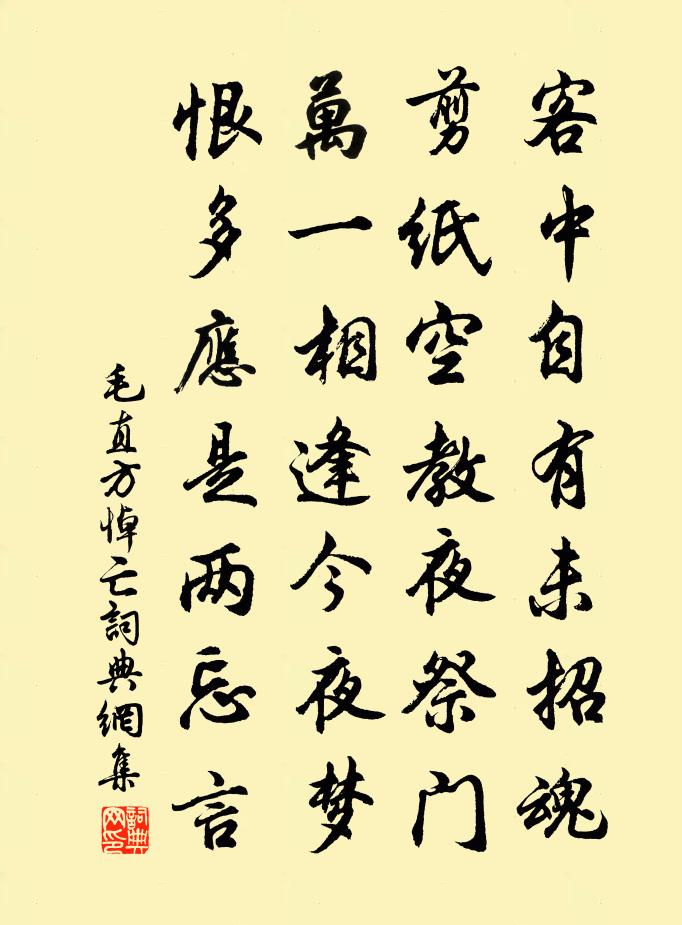 客中自有未招魂
剪纸空教夜祭门
萬一相逢今夜梦
恨多應是两忘言
毛直方悼亡詞典網集
詞典网印